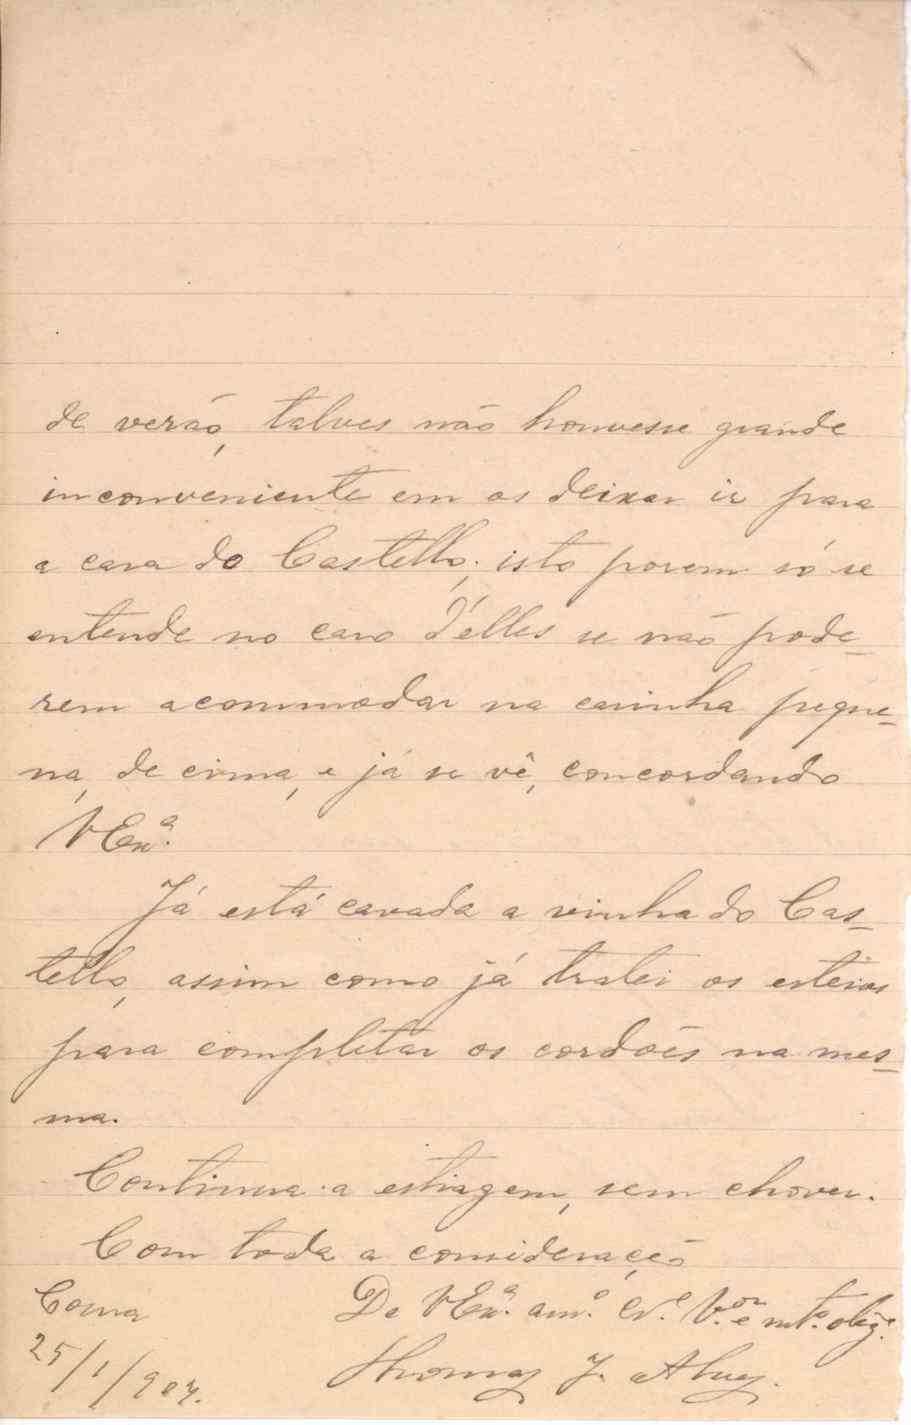 de verão, talves não houvesse grande
inconveniente em os deixar ir para
a casa do Castello; isto porem só se
entende no caso d'elles se não pode-
rem acommodar na casinha peque-
na, de cima, e já se vê, concordando
VExª.
Já está cavada a vinha do Cas-
tello, assim como já tratei os esteios
para completar os cordões na mes-
ma.
Continua a estiagem, sem chover.
Com toda a consideração
De VExª. amº. Crº. V.ºr e mtº. obgº.
25/1/907.
Thomaz J. Alvez.